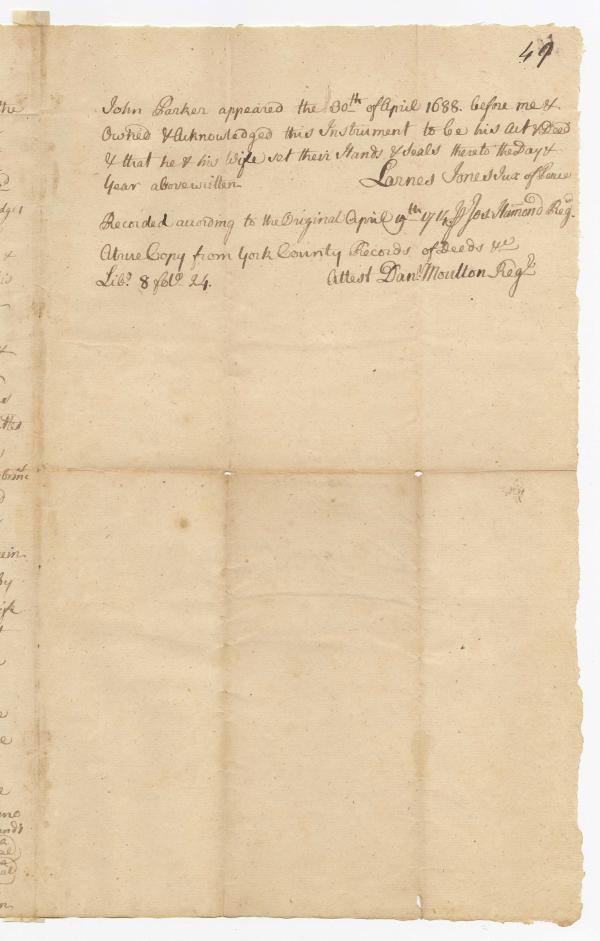 49
John Parker appeared the 30th of April 1688. before me &
Owned & Acknowledged this Instrument to be his Act & Deed
& that he & his Wife set their Hands & Seals thereto the Day &
Year above written. Larnes Jones Jus of Peace
Recorded acording to the Original April 19th 1714 P Jos Hamond Regr.
A true Copy from York County Records of Deeds &c
Libo. 8 folo. 24. Attest Danl. Moulton Regr.